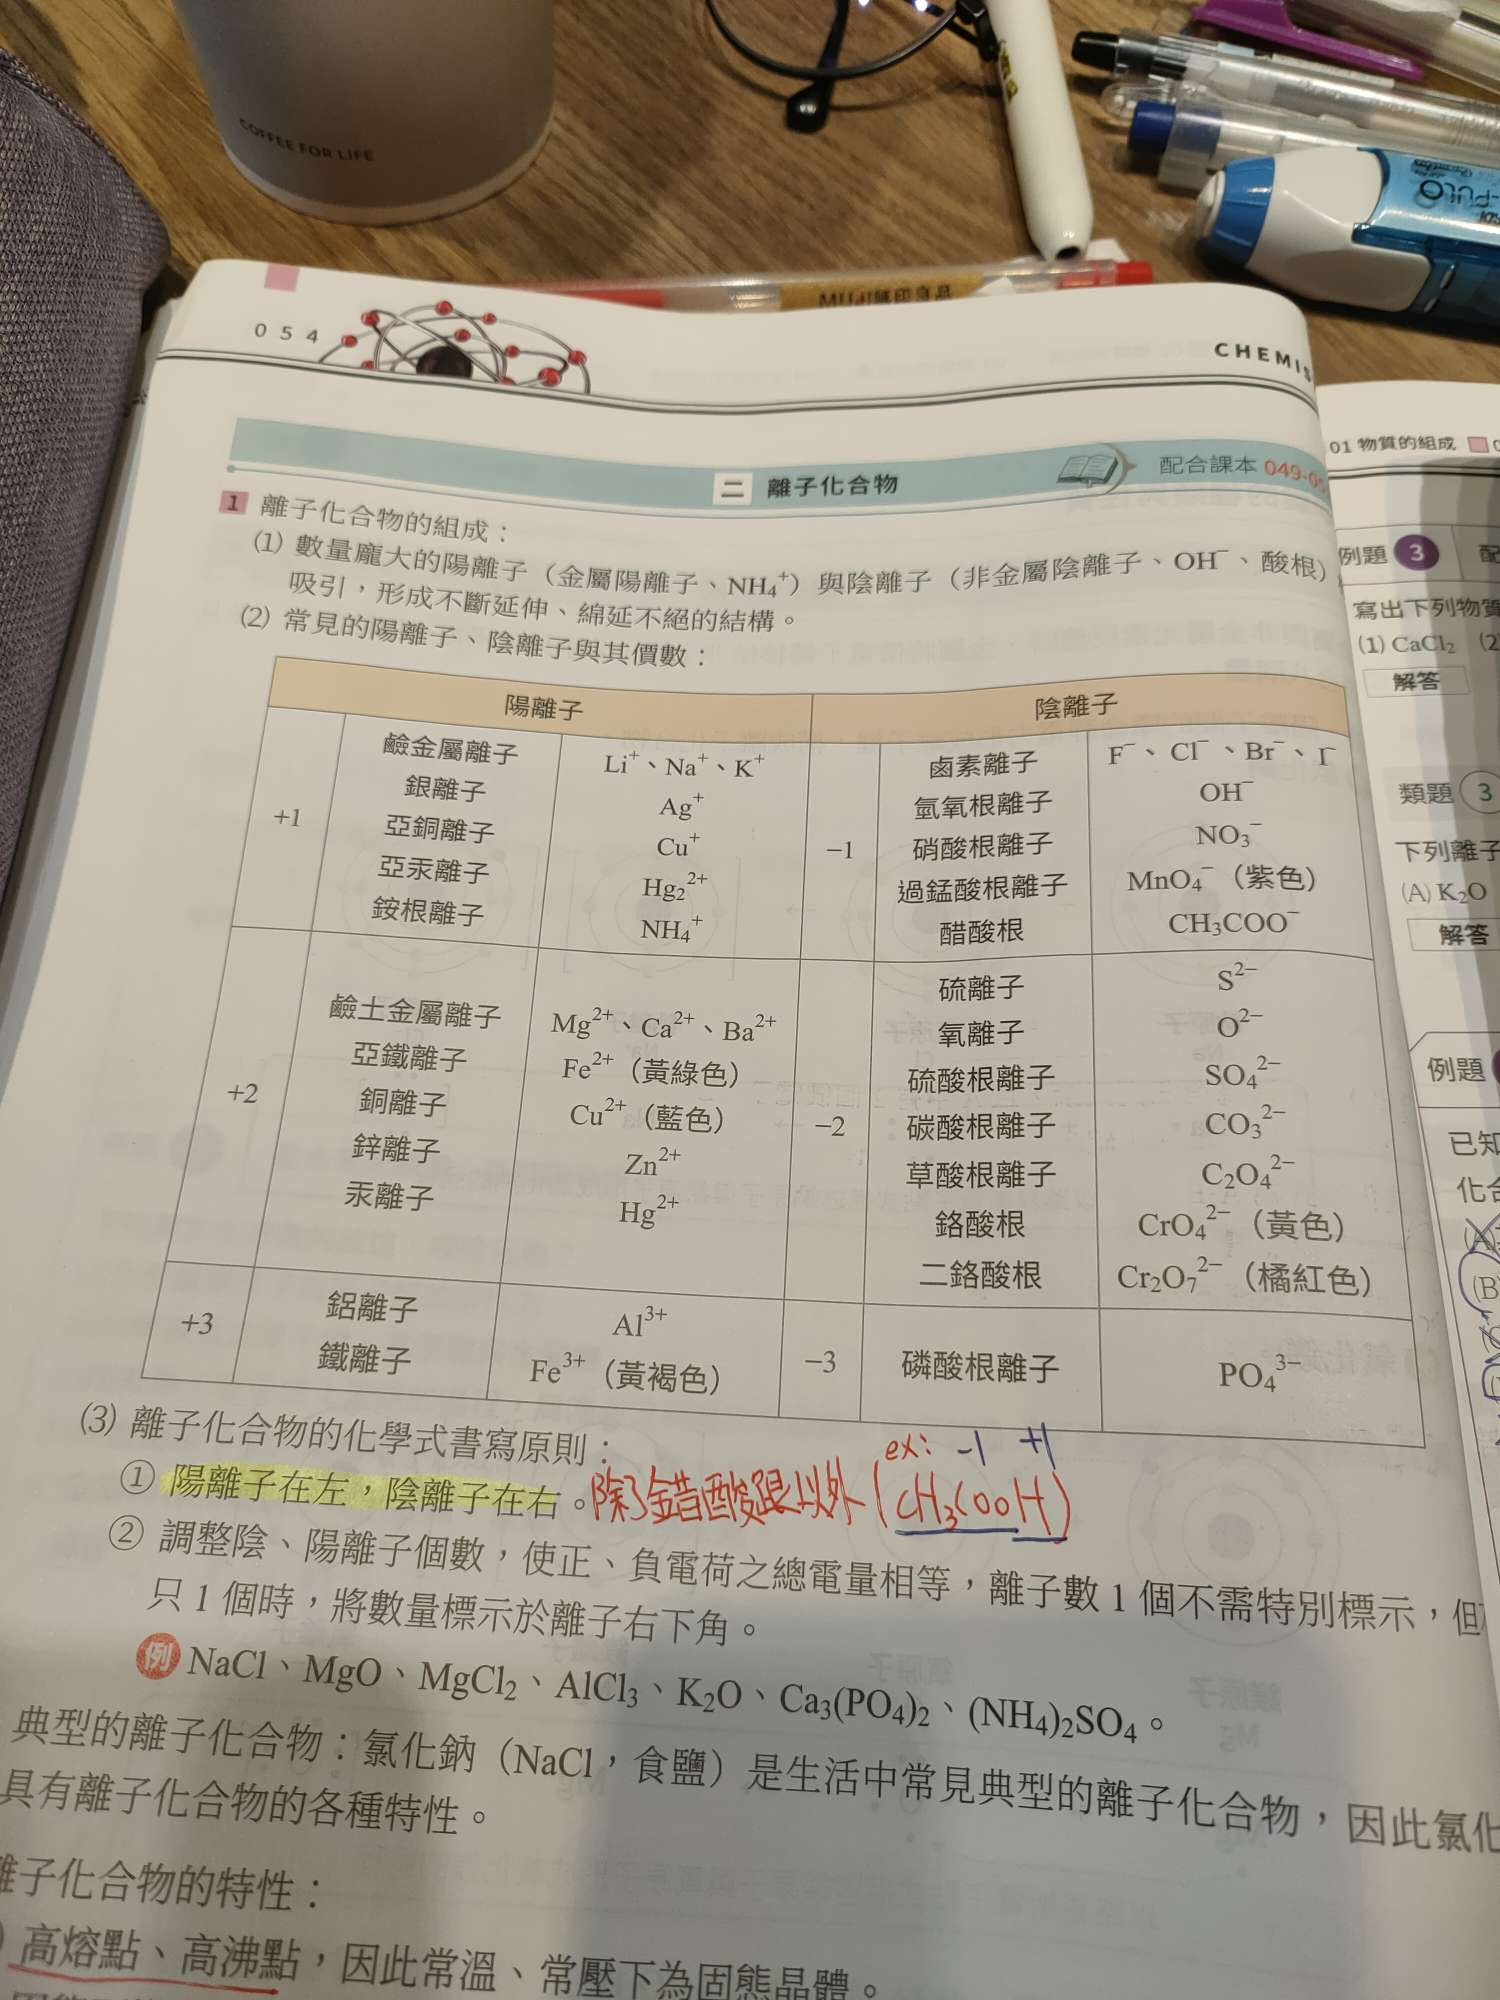 COFFEE FOR LIFE
MUJI無印良品
054
CHEMIS
二 離子化合物
配合課本 049-0
1 離子化合物的組成：
(1) 數量龐大的陽離子（金屬陽離子、NH₄⁺）與陰離子（非金屬陰離子、OH⁻、酸根）
吸引，形成不斷延伸、綿延不絕的結構。
(2) 常見的陽離子、陰離子與其價數：
陽離子 陰離子
+1
鹼金屬離子 Li⁺、Na⁺、K⁺
銀離子 Ag⁺
亞銅離子 Cu⁺
亞汞離子 Hg₂²⁺
銨根離子 NH₄⁺
−1
鹵素離子 F⁻、Cl⁻、Br⁻、I⁻
氫氧根離子 OH⁻
硝酸根離子 NO₃⁻
過錳酸根離子 MnO₄⁻（紫色）
醋酸根 CH₃COO⁻
+2
鹼土金屬離子 Mg²⁺、Ca²⁺、Ba²⁺
亞鐵離子 Fe²⁺（黃綠色）
銅離子 Cu²⁺（藍色）
鋅離子 Zn²⁺
汞離子 Hg²⁺
−2
硫離子 S²⁻
氧離子 O²⁻
硫酸根離子 SO₄²⁻
碳酸根離子 CO₃²⁻
草酸根離子 C₂O₄²⁻
鉻酸根 CrO₄²⁻（黃色）
二鉻酸根 Cr₂O₇²⁻（橘紅色）
+3
鋁離子 Al³⁺
鐵離子 Fe³⁺（黃褐色）
−3
磷酸根離子 PO₄³⁻
(3) 離子化合物的化學式書寫原則：
ex: -1 +1
① 陽離子在左，陰離子在右。除了錯酸跟以外（CH₃COOH）
② 調整陰、陽離子個數，使正、負電荷之總電量相等，離子數 1 個不需特別標示，但
只 1 個時，將數量標示於離子右下角。
例 NaCl、MgO、MgCl₂、AlCl₃、K₂O、Ca₃(PO₄)₂、(NH₄)₂SO₄。
典型的離子化合物：氯化鈉（NaCl，食鹽）是生活中常見典型的離子化合物，因此氯化
具有離子化合物的各種特性。
離子化合物的特性：
高熔點、高沸點，因此常溫、常壓下為固態晶體。
01 物質的組成
例題 3 配
寫出下列物質
(1) CaCl₂ (2
解答
類題 3
下列離子
(A) K₂O
解答
例題
已知
化合
(A)
(B)